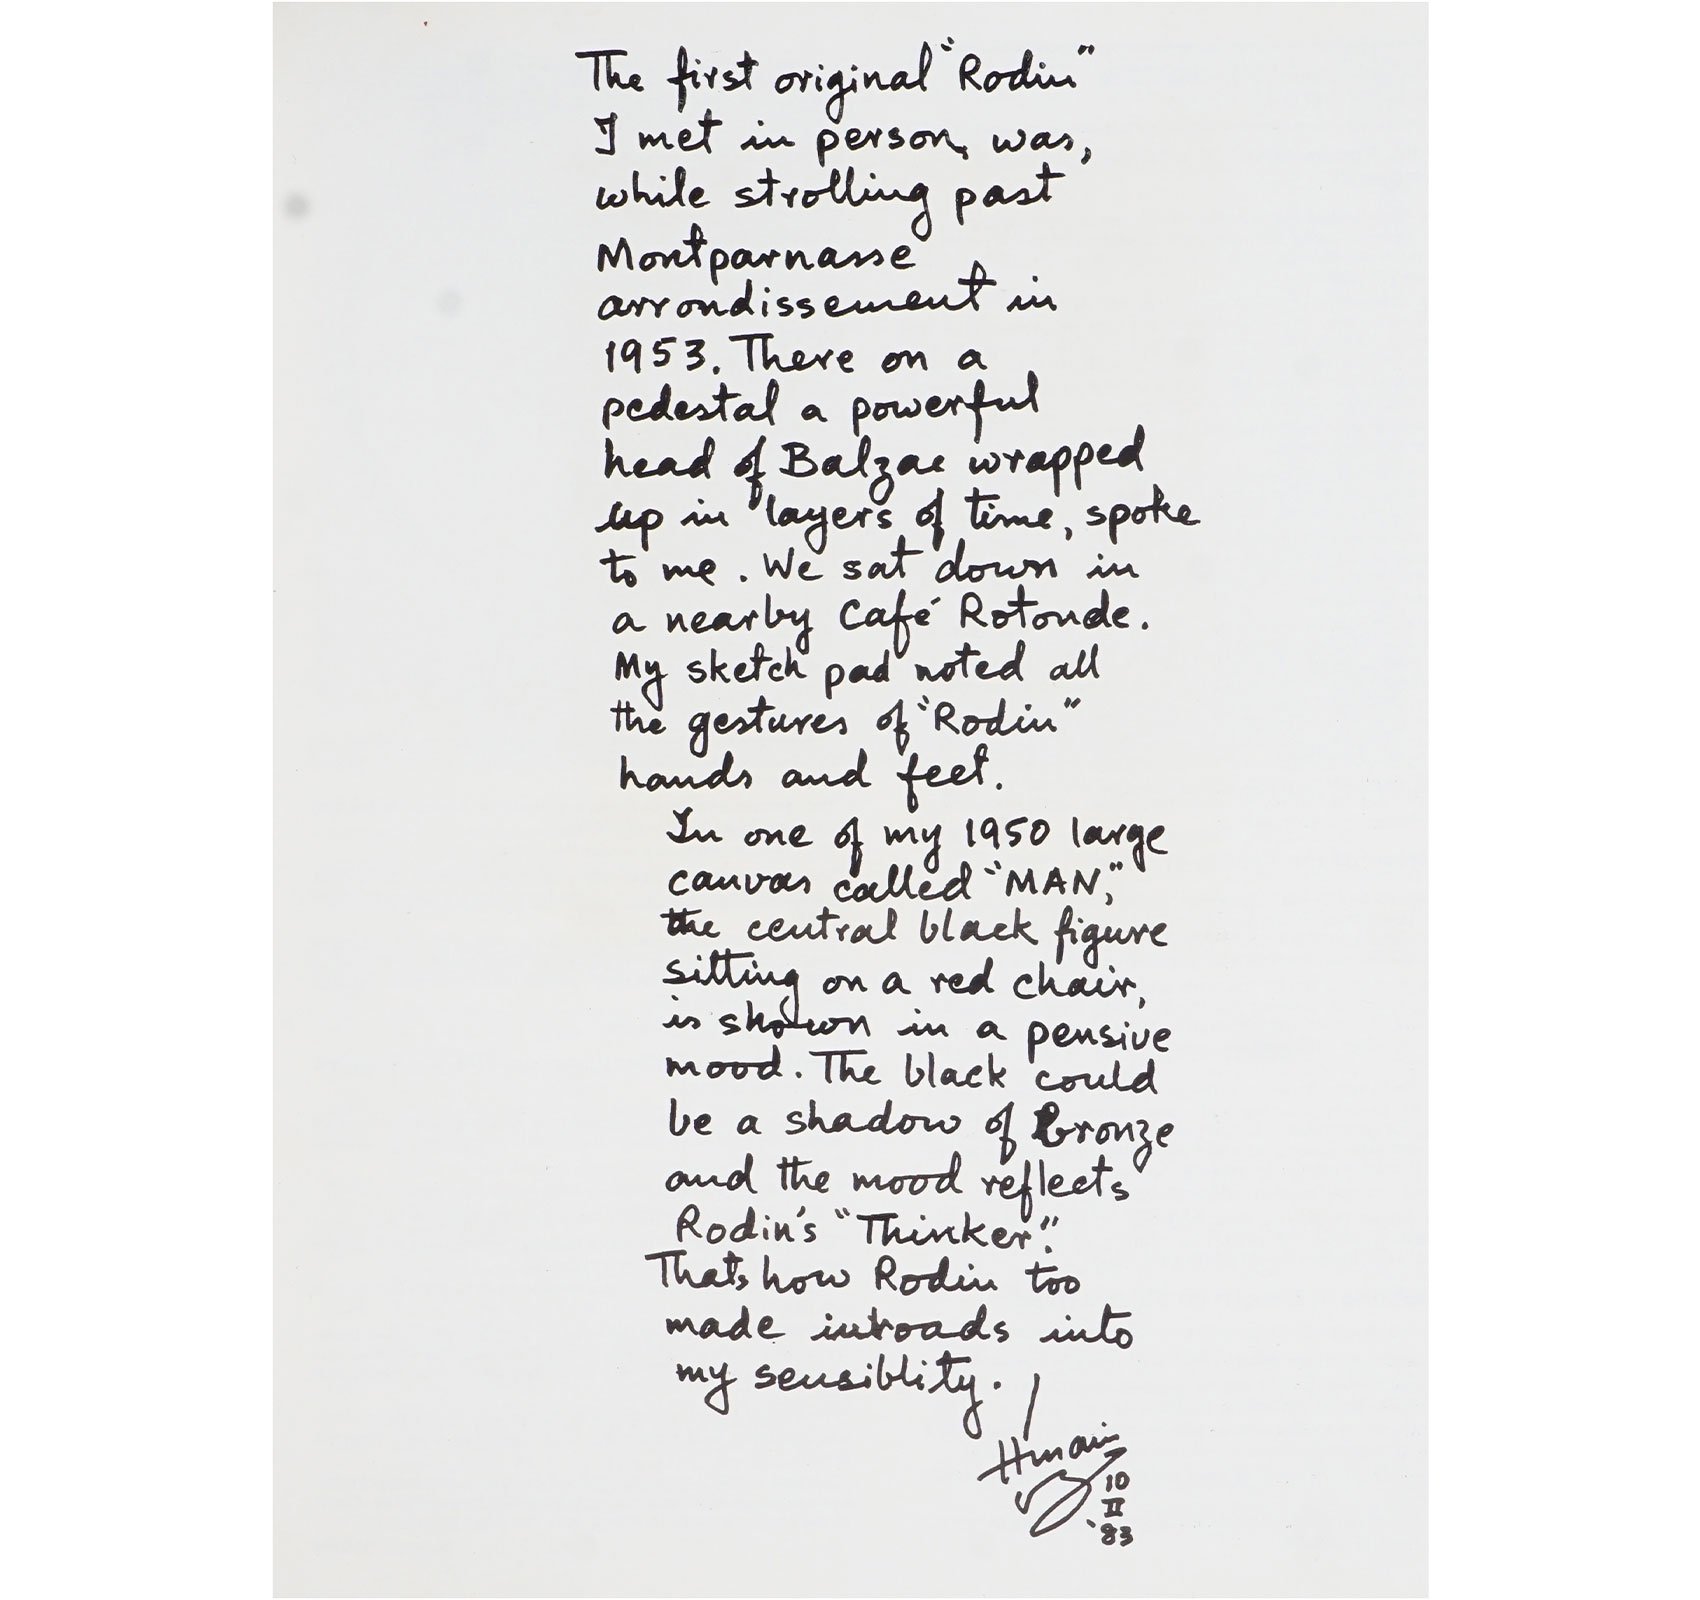 The first original "Rodin"
I met in person, was,
while strolling past
Montparnasse
arrondissement in
1953. There on a
pedestal a powerful
head of Balzac wrapped
up in layers of time, spoke
to me. We sat down in
a nearby Café Rotonde.
My sketch pad noted all
the gestures of "Rodin"
hands and feet.
In one of my 1950 large
canvas called "MAN,"
the central black figure
sitting on a red chair,
is shown in a pensive
mood. The black could
be a shadow of bronze
and the mood reflects
Rodin's "Thinker".
Thats how Rodin too
made inroads into
my sensiblity.
Husain
10
II
'83